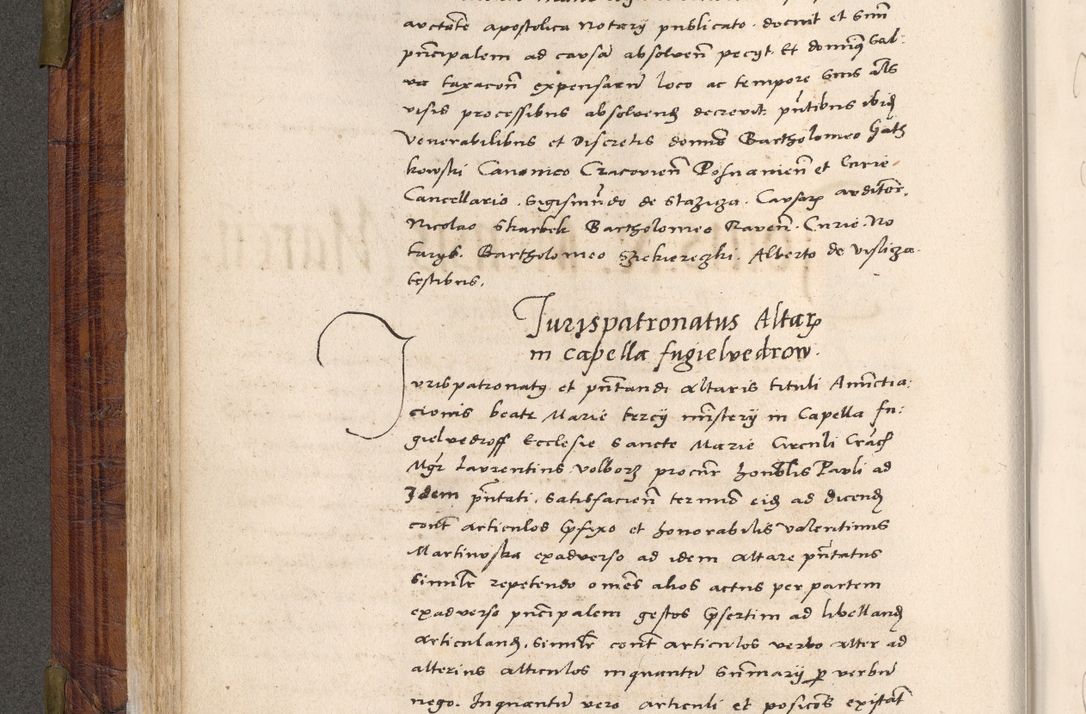 auctoritate apostolica Notary publicato. docuit et suū
prīcipalem ad causā absolueñ pecyt Et dominꝰ Sal:
va taxacoñ expensarū loco ac tempore suis als
visis processibus absolvenđ decrevit. pñtibus ibiđ
Venerabilibus et Discretis domīs Bartholomeo Gath
kowski Canonico Cracovieñ Posnanieñ et Curie
Cancellario. Sigismūdo de Stazicza. Causarꝝ auditor.
Nicolao Skarbek Bartholomeo Raveñ. Curie. No
tarys. Bartholomeo Sziekierezki. Alberto de Visliza.
testibus.
Jurispatronatus Altarꝝ
in capella fugielvedrow.
Jurispatronatꝰ et pñtandi altaris tituli Anūctia:
cionis beate Marie tercy mīstery in Capella fu:
gielvedroff Ecclesie Sancte Marie Circuli Crac̄
Mgr̄ Laurentius Volborz procur̄ honoblis Pauli ad
Idem pñtati. Satisfacieñ termīo eiđ ad dicenđ
cont̄ articulos p̄fixo et honorabilis Valentinus
Martinuska exadverso ad idem altare pñtatus
Similr̄ repetendo om̄es alios actus per partem
exadverso prīcipalem gestos p̄sertim ad libellanđ
articulanđ. Similr̄ cont̄ articulos verbo alter ad
alterius alticulos inquantū Sūmary ꝑ verbū
nego. Inquantū vero articuli et posicōes existāt